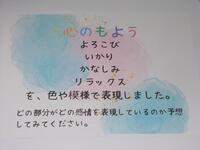 心のもよう
よろこび
いかり
かなしみ
リラックス
を、色や模様で表現しました。
どの部分がどの感情を表現しているのか予想
してみてください。